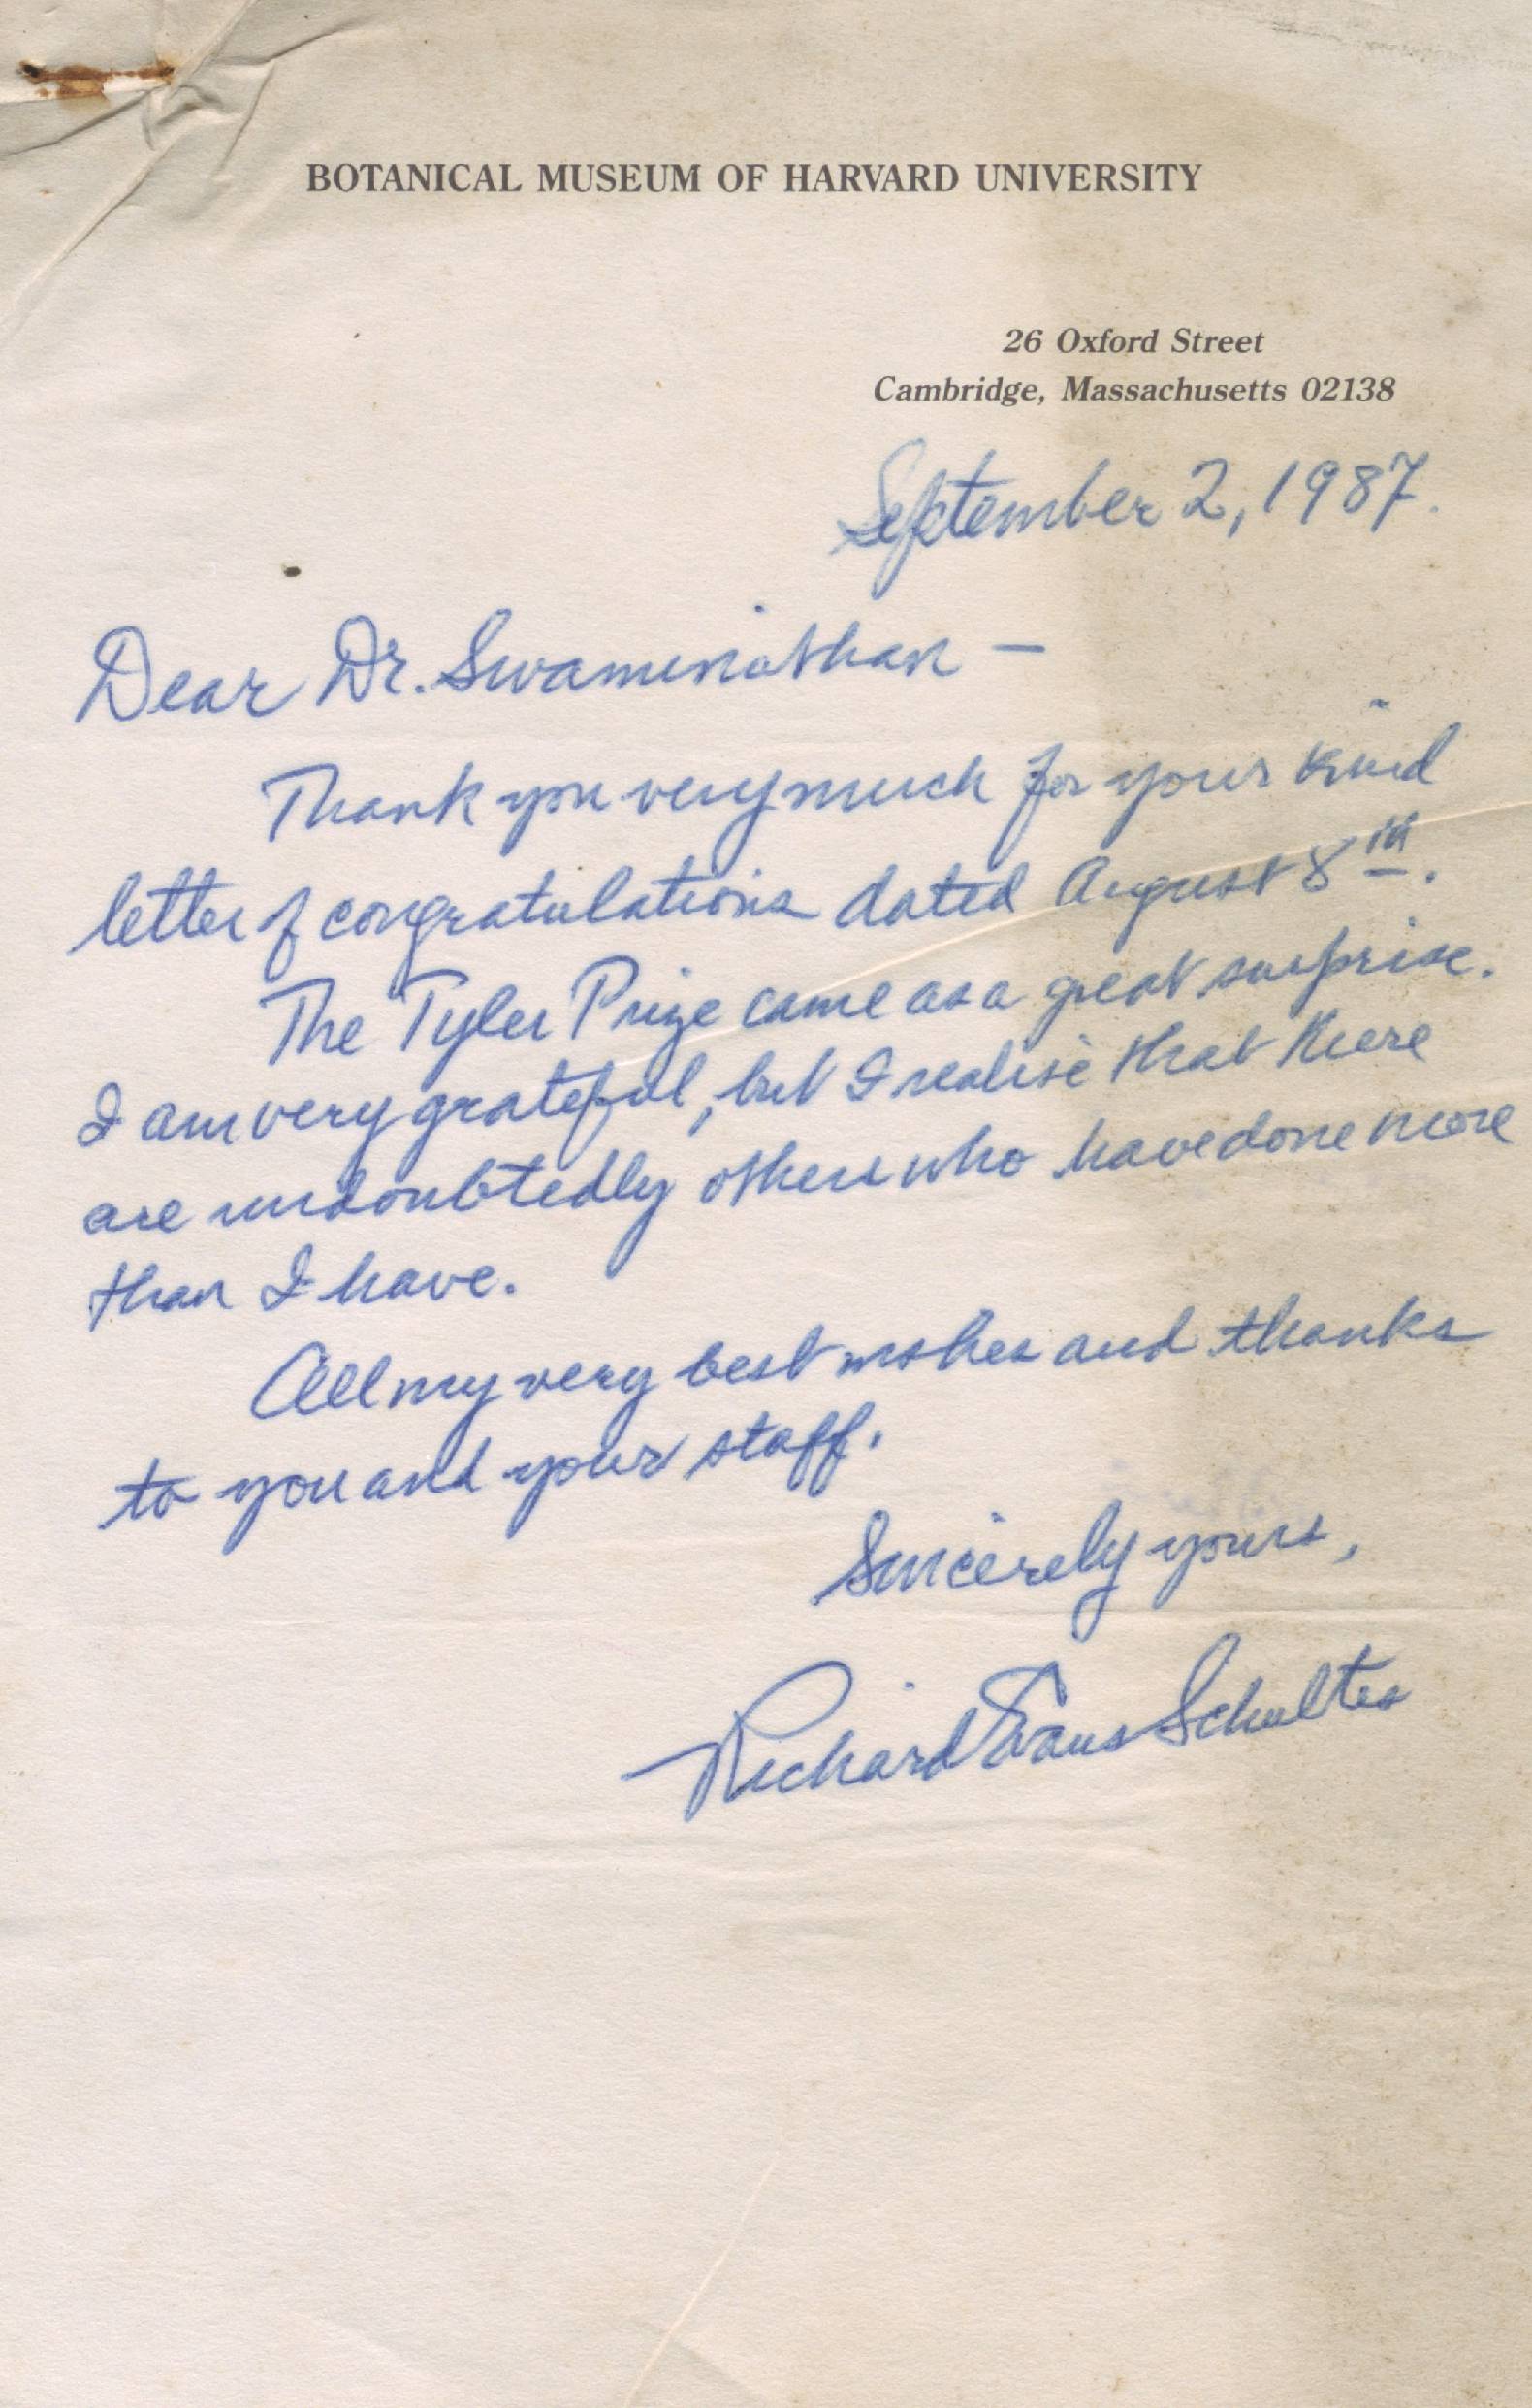 BOTANICAL MUSEUM OF HARVARD UNIVERSITY
26 Oxford Street
Cambridge, Massachusetts 02138
September 2, 1987.
Dear Dr. Swaminathan —
Thank you very much for your kind
letter of congratulations dated August 8th.
The Tyler Prize came as a great surprise.
I am very grateful, but I realise that there
are undoubtedly others who have done more
than I have.
All my very best wishes and thanks
to you and your staff.
Sincerely yours,
Richard Evans Schultes